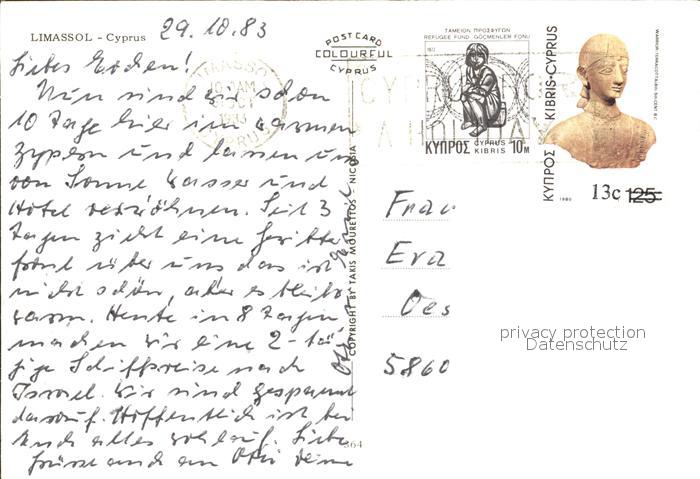 LIMASSOL - Cyprus 29.10.83
POST CARD
COLOURFUL
CYPRUS
Nun sind wir schon
10 Tage hier im warmen
Zypern und lassen uns
von Sonne Wasser und
Hotel verwöhnen. Seit 3
Tagen zieht eine Gewitter
front über uns das ist
nicht schön, aber es bleibt
warm. Heute in 8 Tagen
machen wir eine 2-tä-
gige Schiffsreise nach
Israel. Wir sind gespannt
darauf. Hoffentlich ist bei
Euch alles wohlauf. Liebe
Grüsse auch an Otti Deine
COPYRIGHT BY TAKIS MOURETTOS - NICOSIA
364
ΤΑΜΕΙΟΝ ΠΡΟΣΦΥΓΩΝ
REFUGEE FUND GÖÇMENLER FONU
ΚΥΠΡΟΣ CYPRUS KIBRIS 10M
ΚΥΠΡΟΣ KIBRIS-CYPRUS
1980
13c 125
Frau
Eva
Oes
5860
privacy protection
Datenschutz